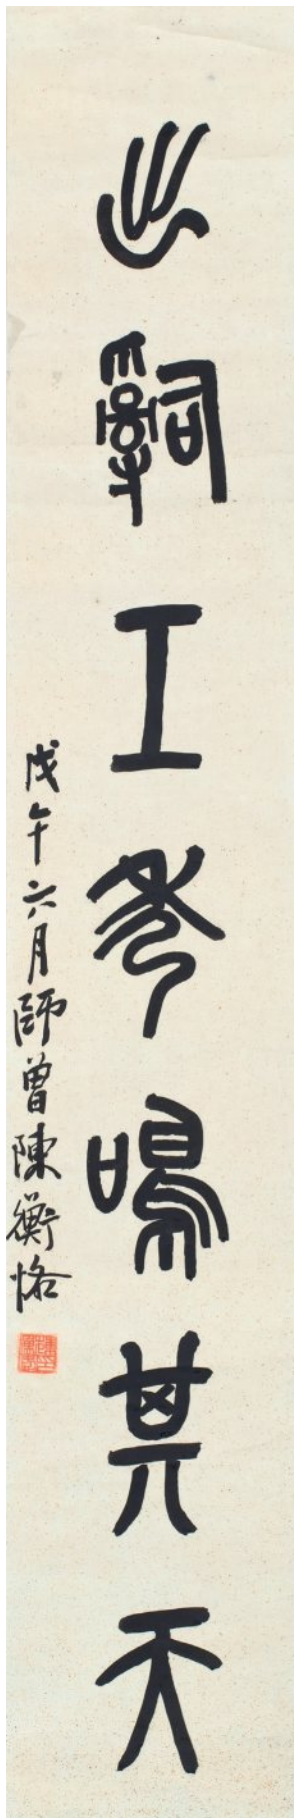 出辭工考鳴其天
戊午六月師曾陳衡恪